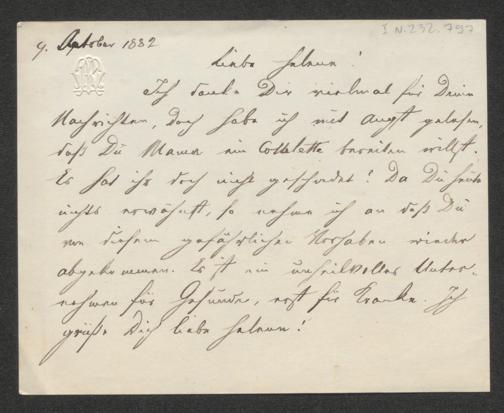 I N. 232.797
9. Oktober 1882
Liebe Helene!
Ich danke Dir vielmal für Deine
Nachrichten, doch habe ich mit Angst gelesen,
daß Du Mama ein Cotelette bereiten willst.
Es hat ihr doch nicht geschadet? Da Du heute
nichts erwähnst, so nehme ich an daß Du
von diesem gefährlichen Vorhaben wieder
abgekommen. Es ist ein unheilvolles Unter-
nehmen für Gesunde, erst für Kranke. Ich
grüße Dich liebe Helene!